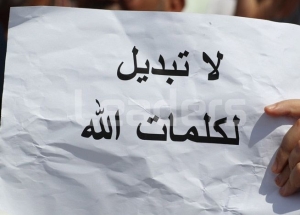 لا تبديل
لكلمات الله
Leaders